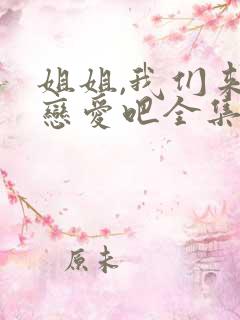 姐姐,我们来
戀爱吧全集
原未